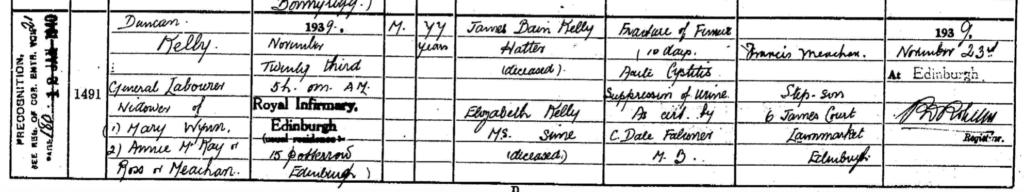 PRECOGNITION,
SEE REG. OF COR. ENTR. VOL 21
PAGE 180. 12 JAN 1940
1491
Duncan
Kelly.
General Labourer
Widower of
1) Mary Wynn.
2) Annie McKay or
Ross or Meachan.
1939.
November
Twenty third
5h. 0m. AM.
Royal Infirmary,
Edinburgh
(usual residence
15 Potterrow
Edinburgh)
M.
77
years
James Bain Kelly
Hatter
(deceased).
Elizabeth Kelly
MS.
(deceased)
Fracture of Femur
10 days.
Acute Cystitis
Suppression of Urine
As cert. by
C. Dale Falconer
M. B.
Francis Meachan.
Step-son
6 James Court
Lawnmarket
Edinburgh.
1939.
November 23rd
At Edinburgh.
Registrar.